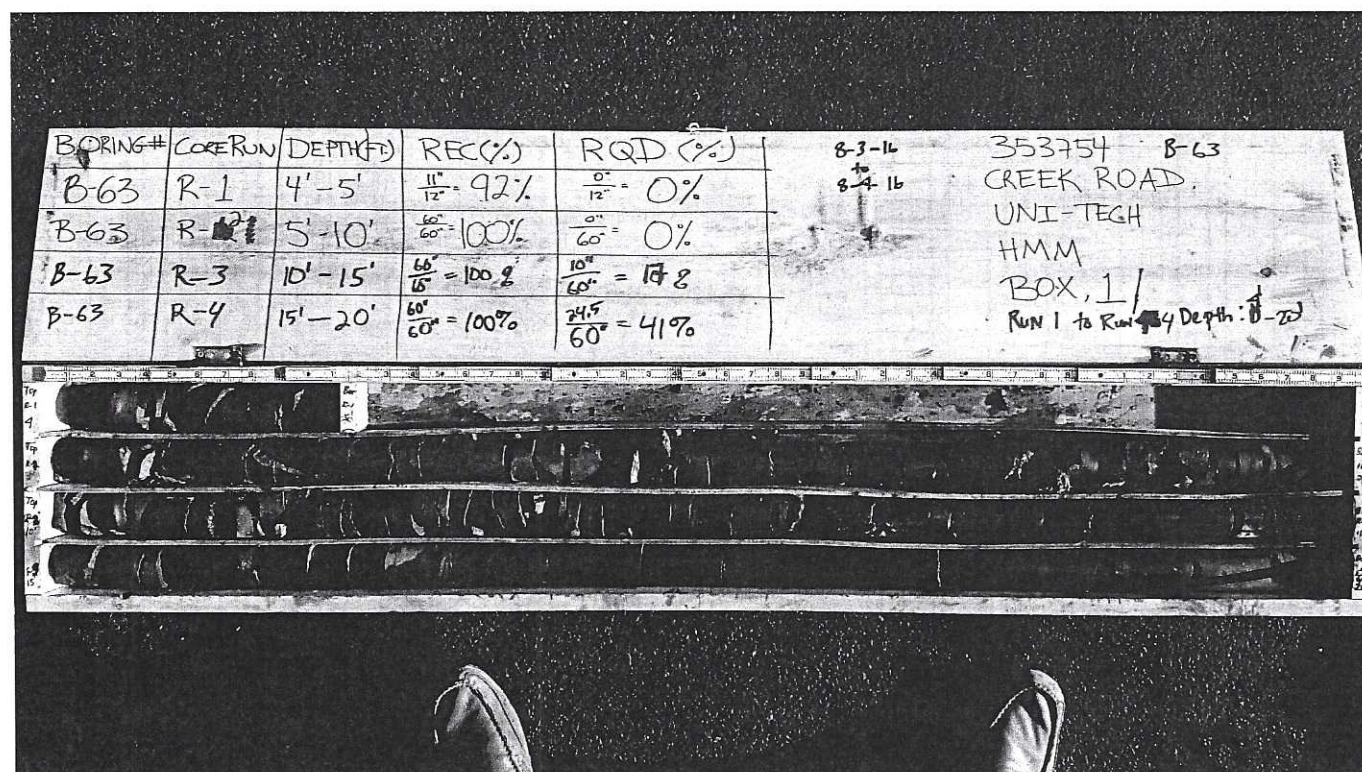 BORING# CORERUN DEPTH(FT.) REC(%) RQD (%)
B-63 R-1 4'-5' 11"/12" = 92% 0"/12" = 0%
B-63 R-2 5'-10' 60"/60" = 100% 0"/60" = 0%
B-63 R-3 10'-15' 60"/60" = 100% 10"/60" =
B-63 R-4 15'-20' 60"/60" = 100% 24.5/60" = 41%
8-3-16
to
8-4-16
353754 B-63
CREEK ROAD.
UNI-TECH
HMM
BOX, 1/
RUN 1 to Run 4 Depth:
Top
R-1
4
Top
Top
10'
15